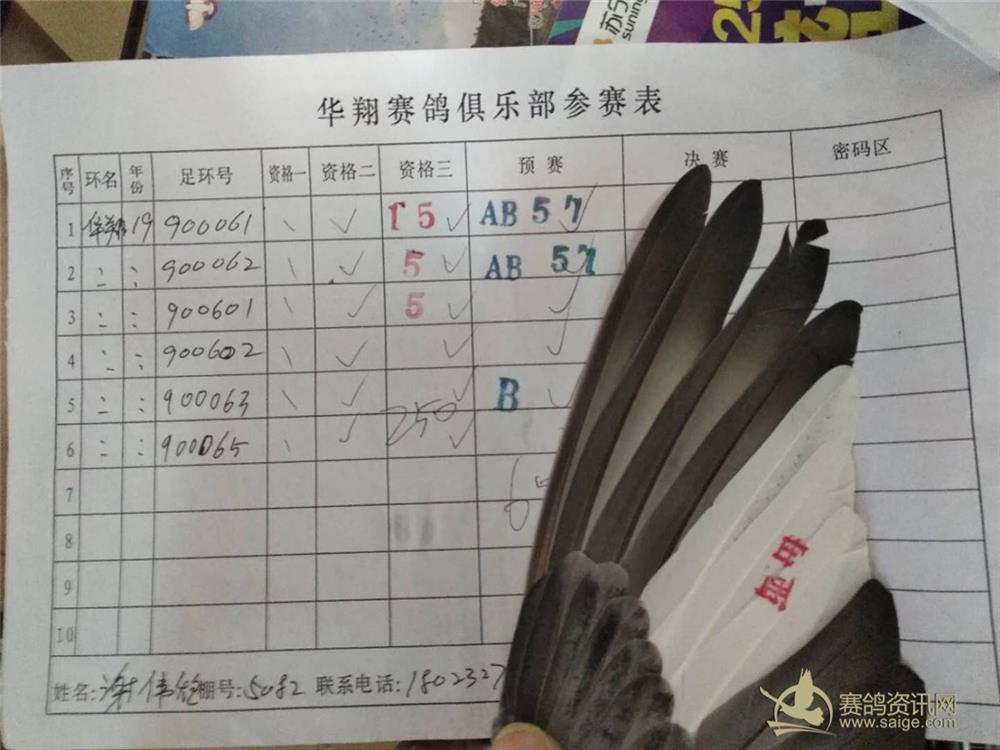 苏宁
suning
25
华翔赛鸽俱乐部参赛表
序号 环名 年份 足环号 资格一 资格二 资格三 预赛 决赛 密码区
1 华翔 19 900061 \ ✓ 15 ✓ AB 57 ✓
2 〃 〃 900062 \ ✓ 5 ✓ AB 57 ✓
3 〃 〃 900601 \ ✓ 5 ✓ ✓
4 〃 〃 900602 \ ✓ ✓ ✓
5 〃 〃 900063 \ ✓ ✓ B ✓
6 〃 〃 900065 \ ✓ 250 ✓
7
8
9
10
姓名:谢伟 棚号:5082 联系电话:1802327
赛鸽资讯网
www.saige.com